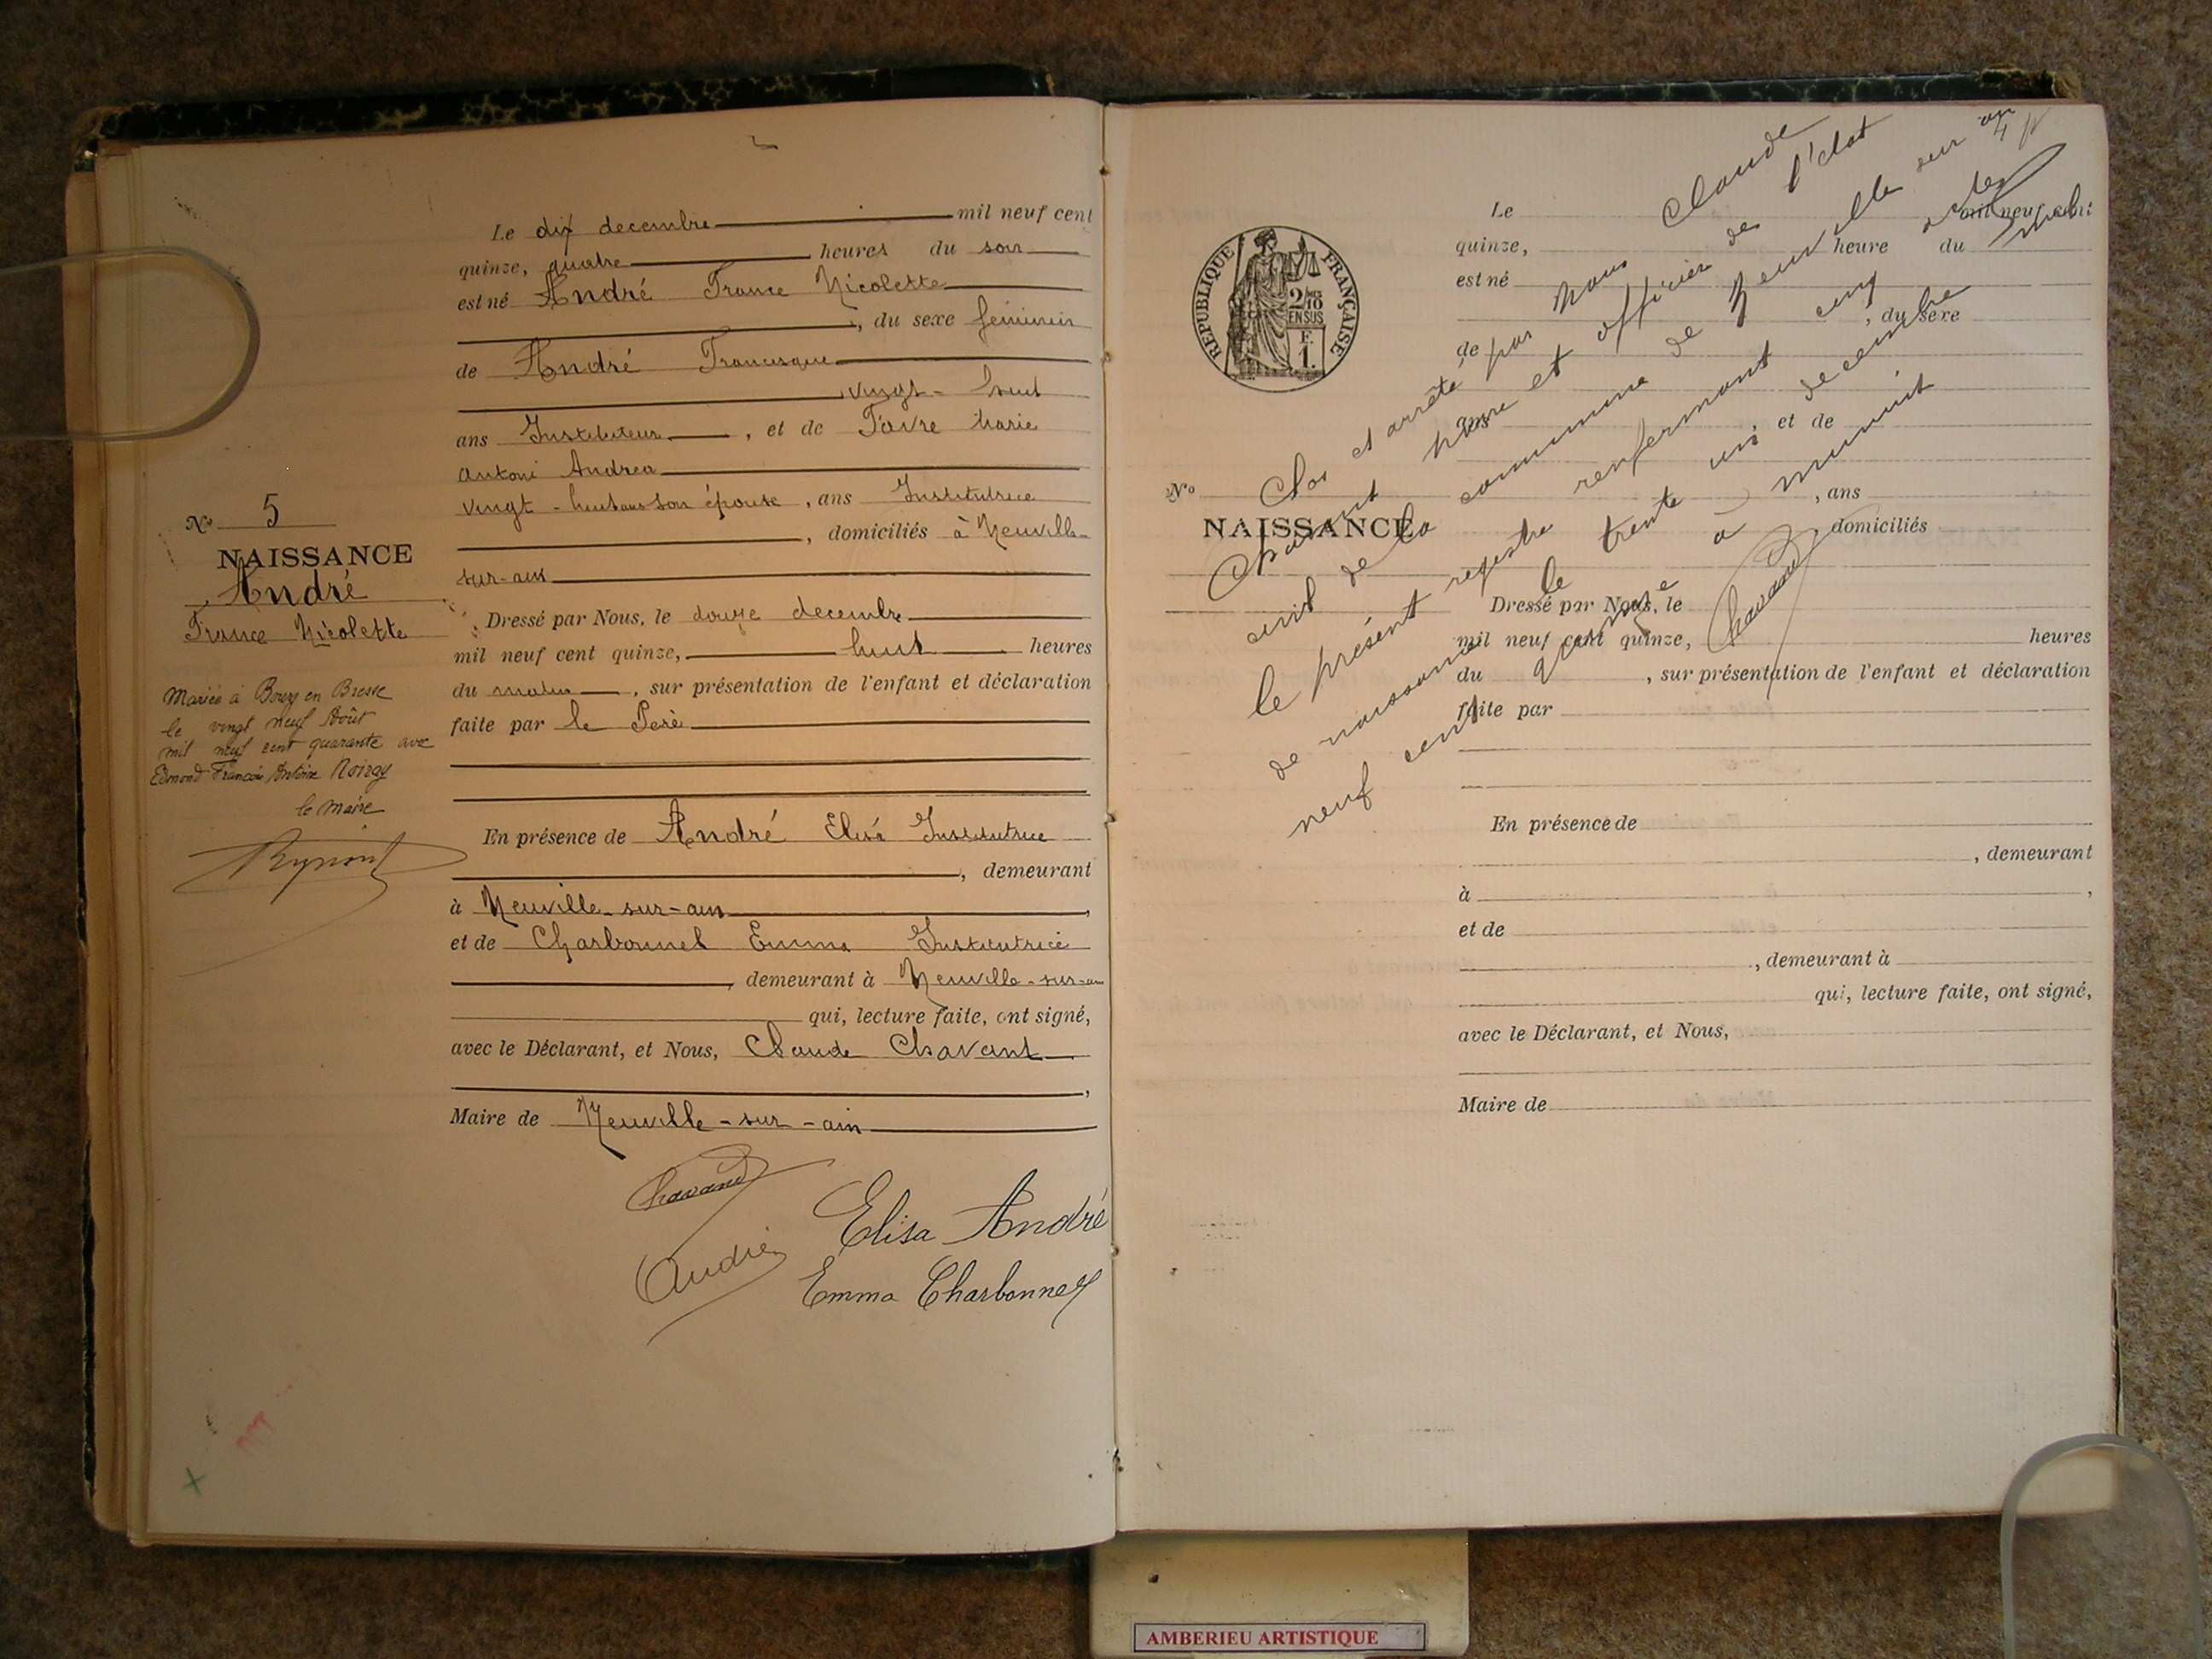 Le dix decembre mil neuf cent
quinze, quatre heures du soir
est né André France Nicolette
, du sexe feminin
de André Francisque
vingt-huit
ans Instituteur, et de Favre Marie
Antoni Andrea
vingt-huit ans son épouse, ans Institutrice
, domiciliés à Neuville-
sur-ain
Dressé par Nous, le douze decembre
mil neuf cent quinze, huit heures
du matin, sur présentation de l'enfant et déclaration
faite par le Père
En présence de André Elisa Institutrice
, demeurant
à Neuville-sur-ain,
et de Charbonnel Emma Institutrice
, demeurant à Neuville-sur-ain
qui, lecture faite, ont signé,
avec le Déclarant, et Nous, Claude Chavant
,
Maire de Neuville-sur-ain
Chavant
Elisa André
André
Emma Charbonnel
No 5
NAISSANCE
André
France Nicolette
Mariée à Bourg en Bresse
le vingt neuf Août
mil neuf cent quarante avec
Edmond François Antoine
le maire
RÉPUBLIQUE FRANÇAISE
2/10
EN SUS
F.
1.
No
NAISSANCE
Le mil neuf cent
quinze, heure du
est né
, du sexe
de
ans , et de
, ans
domiciliés
Dressé par Nous, le
mil neuf cent quinze, heures
du , sur présentation de l'enfant et déclaration
faite par
En présence de
, demeurant
à ,
et de
, demeurant à
qui, lecture faite, ont signé,
avec le Déclarant, et Nous,
Maire de
Clos et arrêté par Nous Claude
Chavant maire et officier de l'état
civil de la commune de Neuville sur ain
le présent registre renfermant cinq actes
de naissance le trente un decembre mil
neuf cent quinze à minuit
Chavant
AMBERIEU ARTISTIQUE